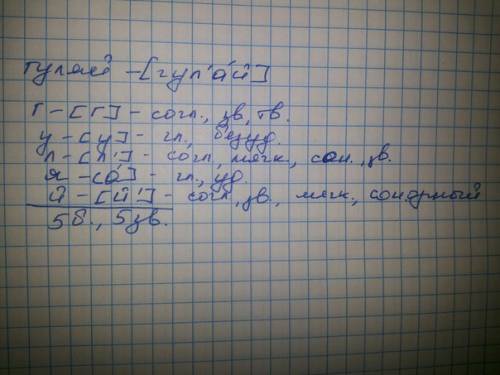 гуляй – [гул'а́й]
г – [г] – согл., зв, тв.
у – [у] – гл., безуд.
л – [л'] – согл, мягк, сон., зв.
я – [а́] – гл., уд.
й – [й'] – согл, зв., мягк, сонорный
5б., 5зв.